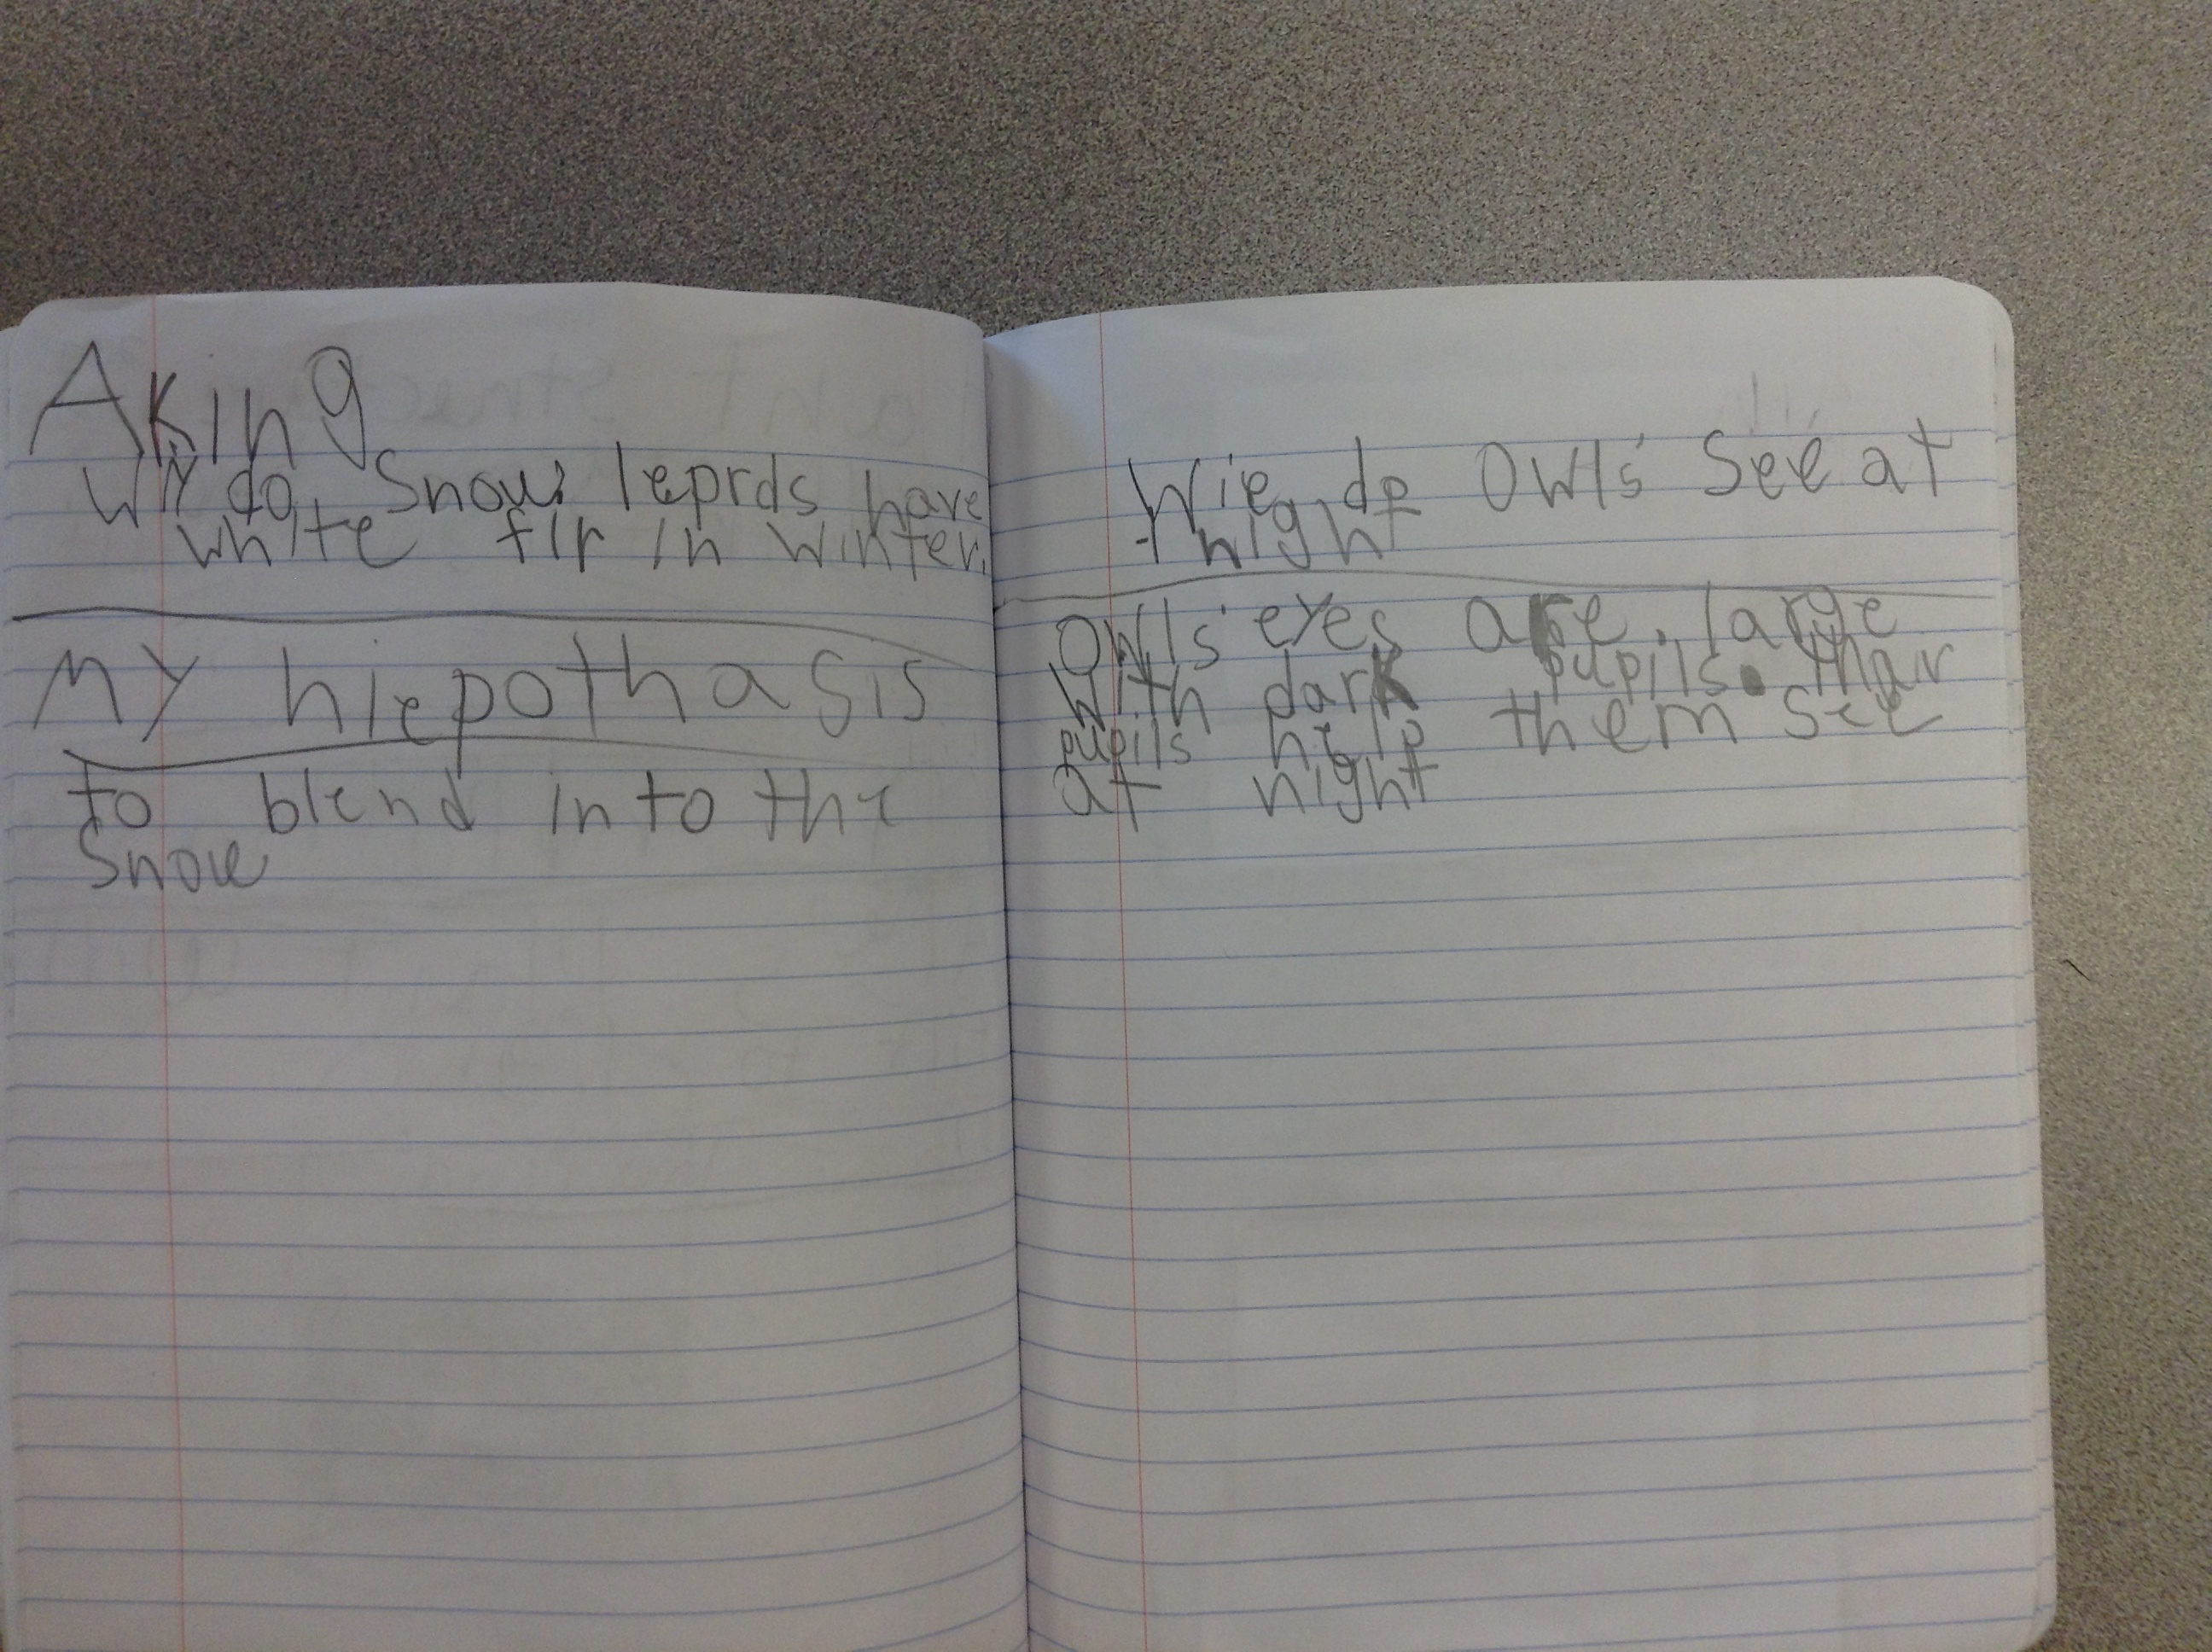 Aking
Wiy do Snow leprds have
white fir in winter.
My hiepothasis
to blend into the
Snow
Wie do Owls See at
night
Owls eyes are large
with dark pupils. thair
pupils help them see
at night